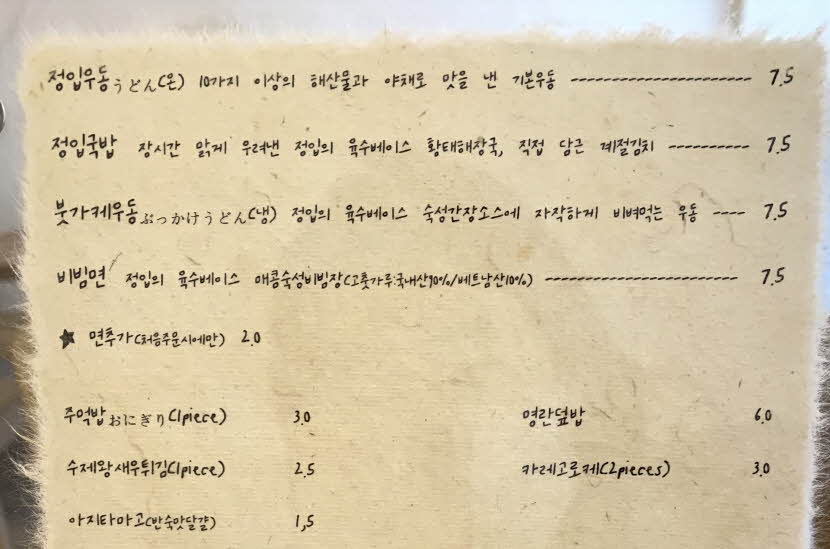 정입우동うどん(온) 10가지 이상의 해산물과 야채로 맛을 낸 기본우동 -------------------- 7.5
정입국밥 장시간 맑게 우려낸 정입의 육수베이스 황태해장국, 직접 담근 계절김치 ---------- 7.5
붓가케우동ぶっかけうどん(냉) 정입의 육수베이스 숙성간장소스에 자작하게 비벼먹는 우동 ---- 7.5
비빔면 정입의 육수베이스 매콤숙성비빔장(고춧가루:국내산90%/베트남산10%) ---------------------- 7.5
★ 면추가(처음주문시에만) 2.0
주먹밥おにぎり(1piece) 3.0 명란덮밥 6.0
수제왕새우튀김(1piece) 2.5 카레고로케(2pieces) 3.0
아지타마고(반숙맛달걀) 1,5